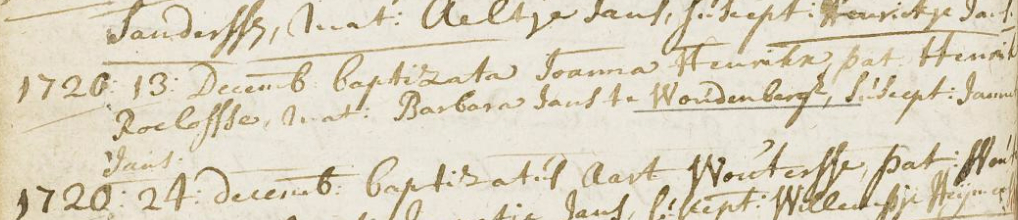 Sanderssz, mat: Aeltje Jans, suscept: Henrickje Jans
1720: 13: Decemb baptizata Joanna Henrikx pat Henrik
Roelofsse, mat: Barbara Jans te Woudenbergh, suscept: Jannet
Jans:
1720: 24: decemb: baptizatus Aart Woutersse, pat: Wout
Jans, suscept: Willempje